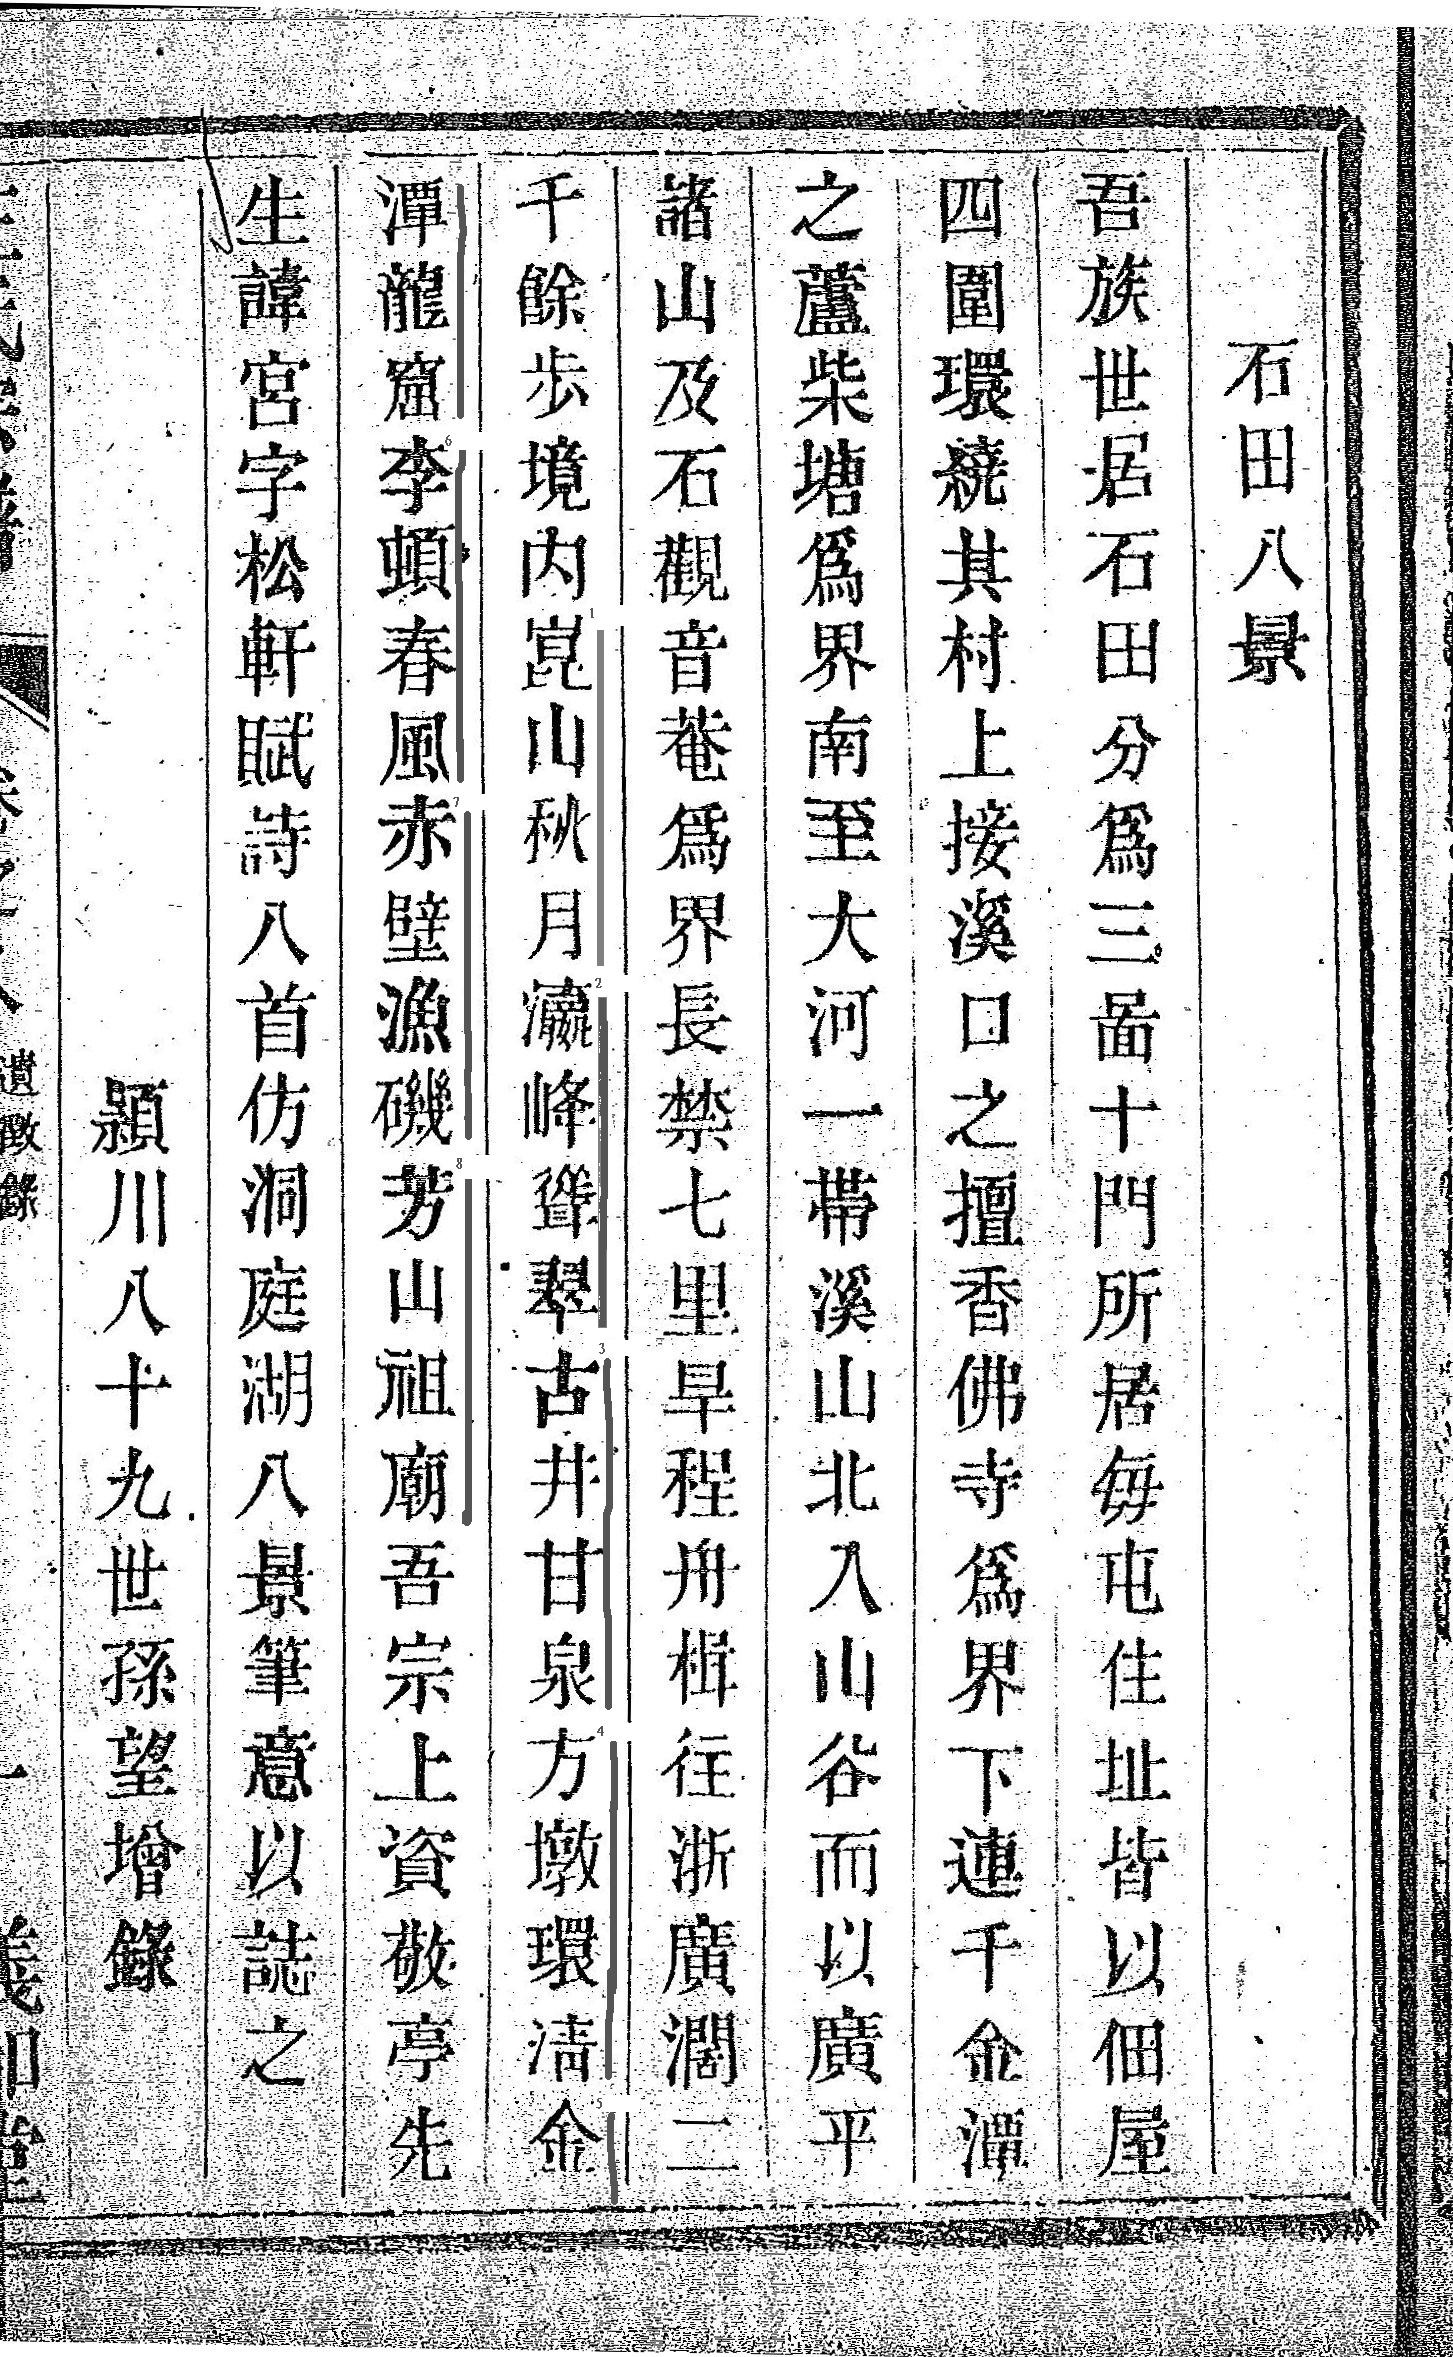 石田八景
吾族世居石田分爲三啚十門所居每屯住址皆以佃屋
四圍環繞其村上接溪口之擅香佛寺爲界下連千金潭
之蘆柴塘爲界南至大河一帶溪山北入山谷而以廣平
諸山及石觀音菴爲界長禁七里旱程舟楫往浙廣濶二
千餘步境内崑山秋月瀛峰聳翠古井甘泉方墩環清金
潭龍窟李頓春風赤壁漁磯芳山祖廟吾宗上資敬亭先
生諱宮字松軒賦詩八首仿洞庭湖八景筆意以誌之
潁川八十九世孫望增錄
遺徵錄